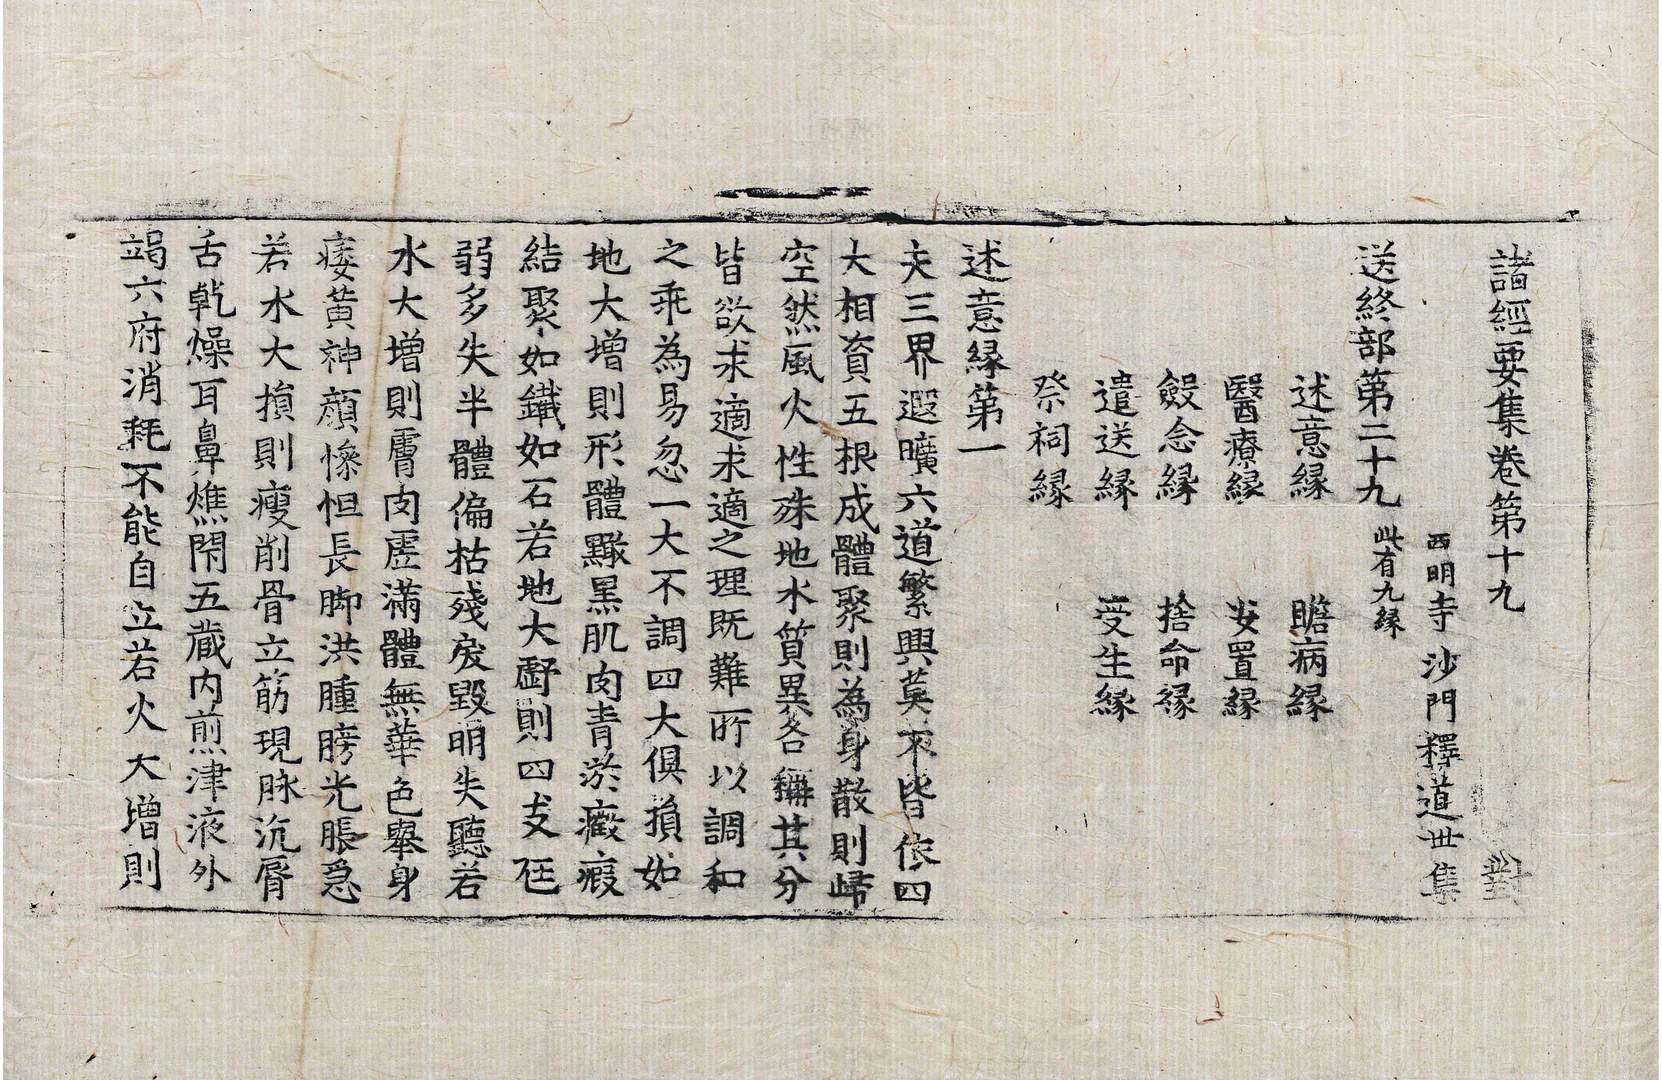 諸經要集卷第十九 對
西明寺沙門釋道世集
送終部第二十九 此有九緣
述意緣 瞻病緣
醫療緣 安置緣
斂念緣 捨命緣
遣送緣 受生緣
祭祠緣
述意緣第一
夫三界遐曠六道繁興莫不皆依四
大相資五根成體聚則為身散則歸
空然風火性殊地水質異各稱其分
皆欲求適求適之理既難所以調和
之乖為易忽一大不調四大俱損如
地大增則形體黰黑肌肉青淤癥瘕
結聚如鐵如石若地大虧則四支尫
弱多失半體偏枯殘戾毀明失聽若
水大增則膚肉虛滿體無華色舉身
痿黃神顏慘怛長脚洪腫膀光脹急
若水大損則瘦削骨立筋現脉沉脣
舌乾燥耳鼻燋閇五藏內煎津液外
竭六府消耗不能自立若火大增則